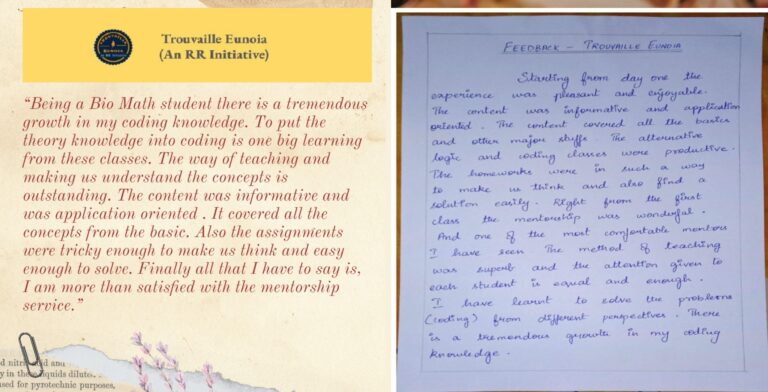 Trouvaille Eunoia
(An RR Initiative)
“Being a Bio Math student there is a tremendous
growth in my coding knowledge. To put the
theory knowledge into coding is one big learning
from these classes. The way of teaching and
making us understand the concepts is
outstanding. The content was informative and
was application oriented . It covered all the
concepts from the basic. Also the assignments
were tricky enough to make us think and easy
enough to solve. Finally all that I have to say is,
I am more than satisfied with the mentorship
service.”
d nitric acid and
y in these liquids dilute.
used for pyrotechnic purposes,
FEEDBACK - TROUVAILLE EUNOIA
Starting from day one the
experience was pleasant and enjoyable.
The content was informative and application
oriented . The content covered all the basics
and other major stuffs . The alternative
logic and coding classes were productive .
The homeworks were in such a way
to make us think and also find a
solution easily . Right from the first
class the mentorship was wonderful .
And one of the most comfortable mentors
I have seen The method of teaching
was superb and the attention given to
each student is equal and enough .
I have learnt to solve the problems
(coding) from different perspectives . There
is a tremondous growth in my coding
knowledge .